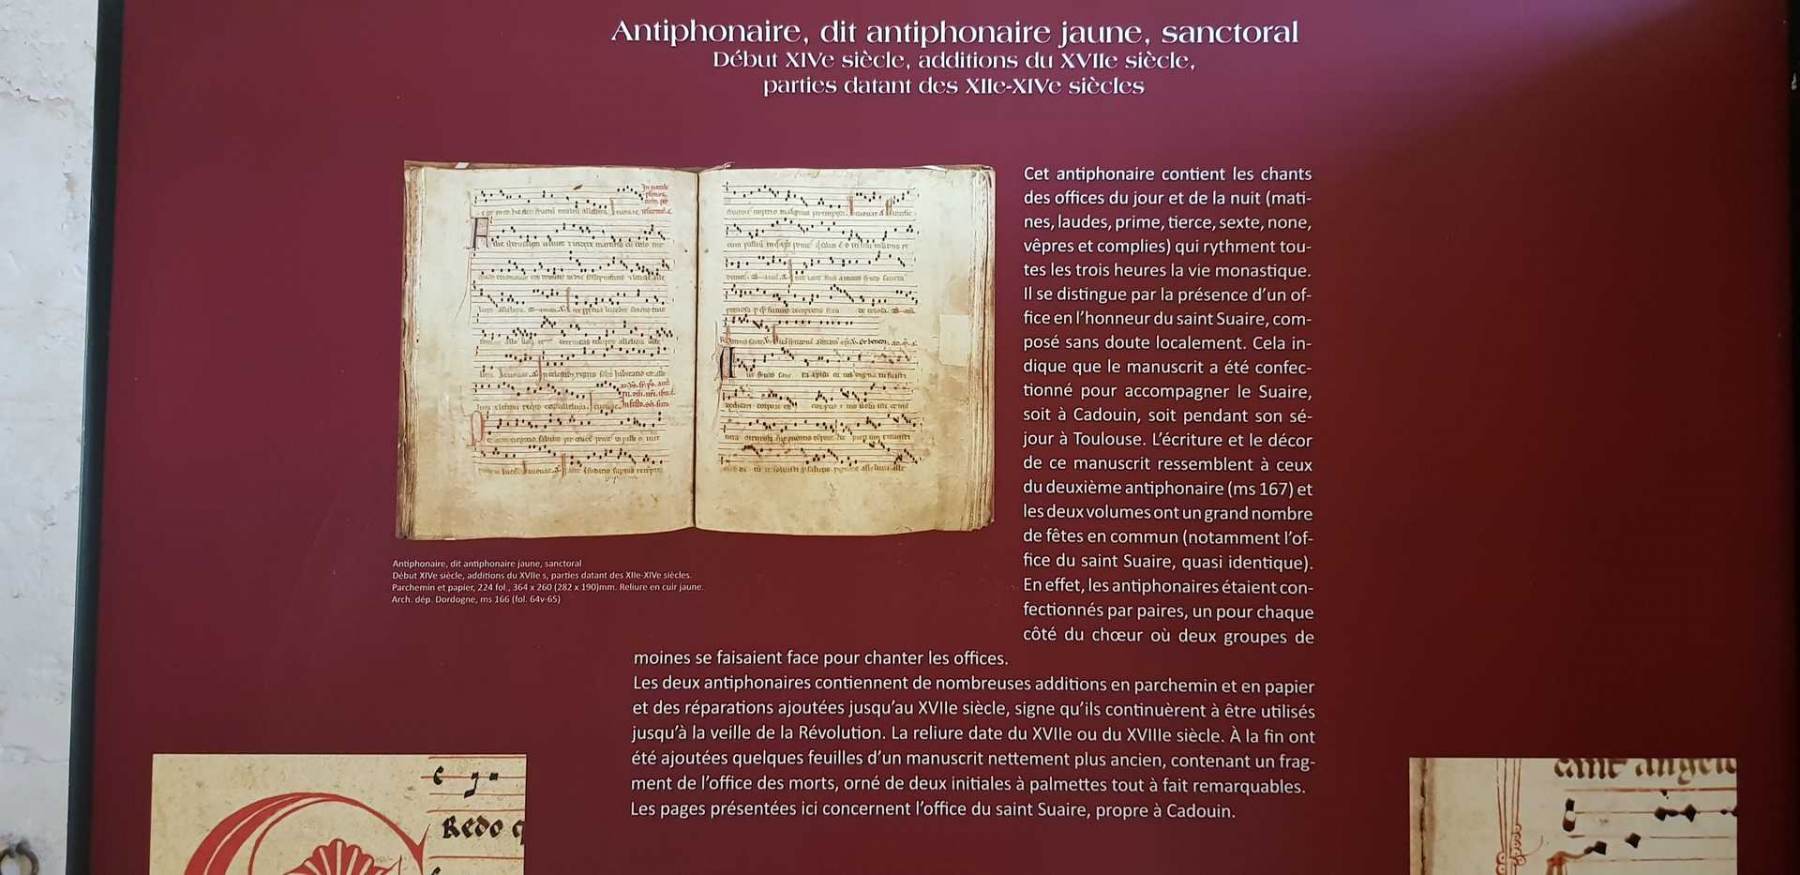 Antiphonaire, dit antiphonaire jaune, sanctoral
Début XIVe siècle, additions du XVIIe siècle,
parties datant des XIIe-XIVe siècles
Cet antiphonaire contient les chants
des offices du jour et de la nuit (mati-
nes, laudes, prime, tierce, sexte, none,
vêpres et complies) qui rythment tou-
tes les trois heures la vie monastique.
Il se distingue par la présence d'un of-
fice en l'honneur du saint Suaire, com-
posé sans doute localement. Cela in-
dique que le manuscrit a été confec-
tionné pour accompagner le Suaire,
soit à Cadouin, soit pendant son sé-
jour à Toulouse. L'écriture et le décor
de ce manuscrit ressemblent à ceux
du deuxième antiphonaire (ms 167) et
les deux volumes ont un grand nombre
de fêtes en commun (notamment l'of-
fice du saint Suaire, quasi identique).
En effet, les antiphonaires étaient con-
fectionnés par paires, un pour chaque
côté du chœur où deux groupes de
moines se faisaient face pour chanter les offices.
Les deux antiphonaires contiennent de nombreuses additions en parchemin et en papier
et des réparations ajoutées jusqu'au XVIIe siècle, signe qu'ils continuèrent à être utilisés
jusqu'à la veille de la Révolution. La reliure date du XVIIe ou du XVIIIe siècle. À la fin ont
été ajoutées quelques feuilles d'un manuscrit nettement plus ancien, contenant un frag-
ment de l'office des morts, orné de deux initiales à palmettes tout à fait remarquables.
Les pages présentées ici concernent l'office du saint Suaire, propre à Cadouin.
Antiphonaire, dit antiphonaire jaune, sanctoral
Début XIVe siècle, additions du XVIIe s, parties datant des XIIe-XIVe siècles.
Parchemin et papier, 224 fol., 364 x 260 (282 x 190)mm. Reliure en cuir jaune.
Arch. dép. Dordogne, ms 166 (fol. 64v-65)
Redo q